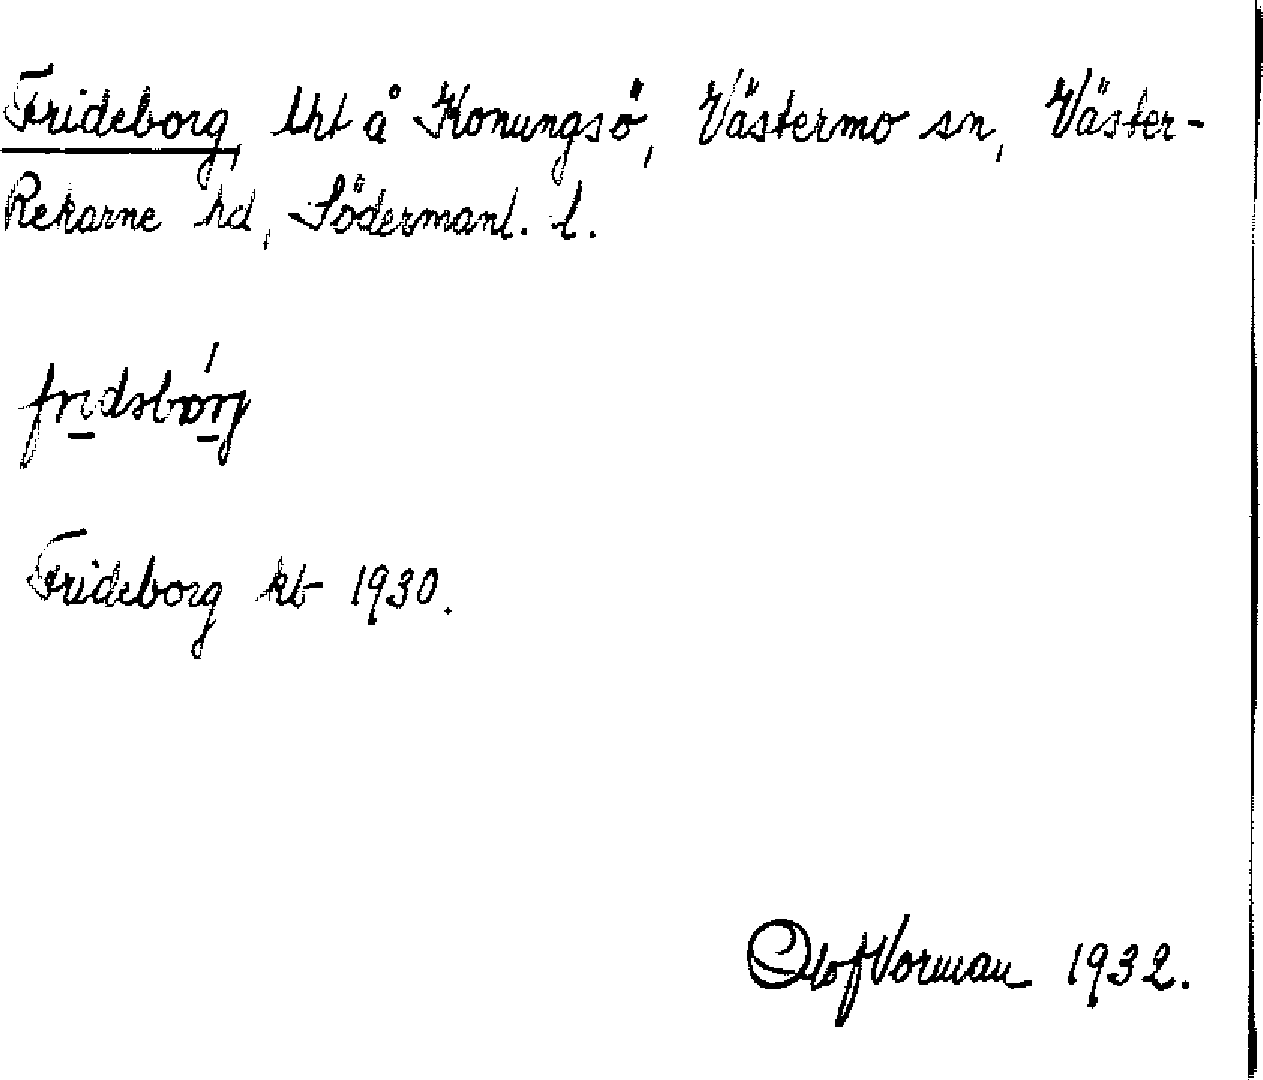 Frideborg, lht å Konungsö, Västermo sn, Väster-
Rekarne hd, Södermanl. l.
fridsbórj
Frideborg kb 1930.
Olof Vorman 1932.